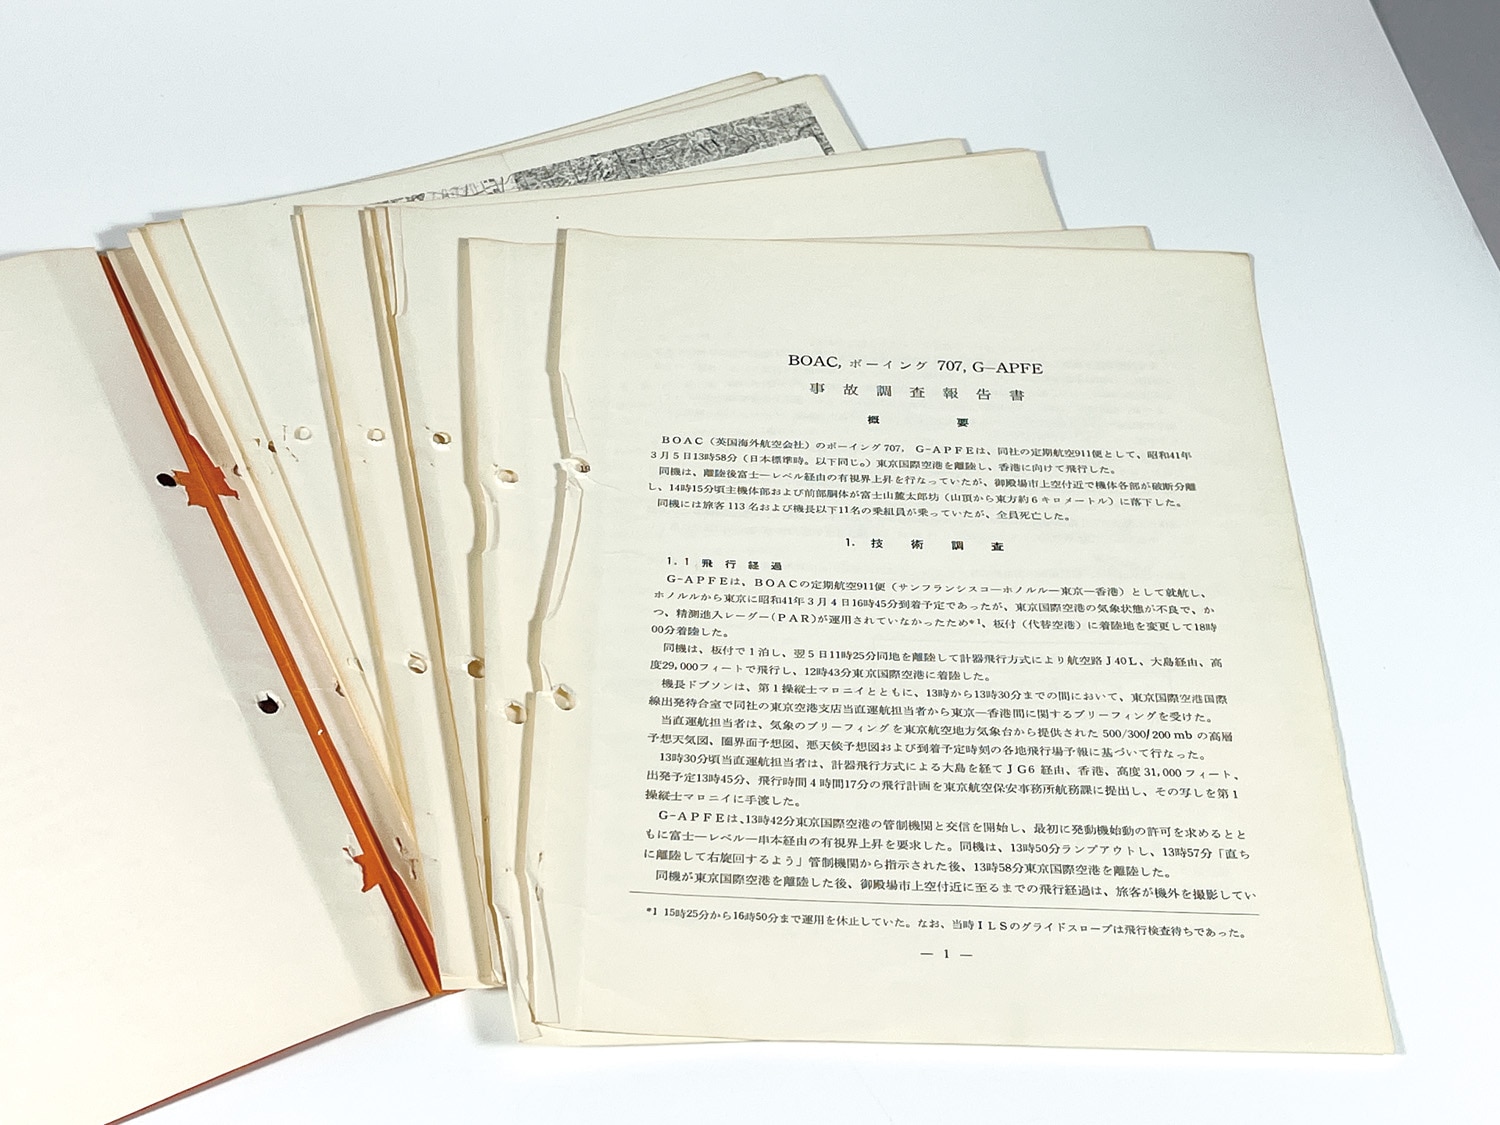 BOAC, ボーイング 707, G-APFE
事故調査報告書
概要
BOAC（英国海外航空会社）のボーイング707, G-APFEは、同社の定期航空911便として、昭和41年
3月5日13時58分（日本標準時。以下同じ。）東京国際空港を離陸し、香港に向けて飛行した。
同機は、離陸後富士―レベル経由の有視界上昇を行なっていたが、御殿場市上空付近で機体各部が破断分離
し、14時15分頃主機体部および前部胴体が富士山麓太郎坊（山頂から東方約6キロメートル）に落下した。
同機には旅客113名および機長以下11名の乗組員が乗っていたが、全員死亡した。
1. 技術調査
1.1 飛行経過
G-APFEは、BOACの定期航空911便（サンフランシスコ―ホノルル―東京―香港）として就航し、
ホノルルから東京に昭和41年3月4日16時45分到着予定であったが、東京国際空港の気象状態が不良で、か
つ、精測進入レーダー(PAR)が運用されていなかったため*1、板付（代替空港）に着陸地を変更して18時
00分着陸した。
同機は、板付で1泊し、翌5日11時25分同地を離陸して計器飛行方式により航空路J40L、大島経由、高
度29,000フィートで飛行し、12時43分東京国際空港に着陸した。
機長ドブソンは、第1操縦士マロニイとともに、13時から13時30分までの間において、東京国際空港国際
線出発待合室で同社の東京空港支店当直運航担当者から東京―香港間に関するブリーフィングを受けた。
当直運航担当者は、気象のブリーフィングを東京航空地方気象台から提供された 500/300/200 mb の高層
予想天気図、圏界面予想図、悪天候予想図および到着予定時刻の各地飛行場予報に基づいて行なった。
13時30分頃当直運航担当者は、計器飛行方式による大島を経てJG6 経由、香港、高度31,000フィート、
出発予定13時45分、飛行時間4時間17分の飛行計画を東京航空保安事務所航務課に提出し、その写しを第1
操縦士マロニイに手渡した。
G-APFEは、13時42分東京国際空港の管制機関と交信を開始し、最初に発動機始動の許可を求めるとと
もに富士―レベル―串本経由の有視界上昇を要求した。同機は、13時50分ランプアウトし、13時57分「直ち
に離陸して右旋回するよう」管制機関から指示された後、13時58分東京国際空港を離陸した。
同機が東京国際空港を離陸した後、御殿場市上空付近に至るまでの飛行経過は、旅客が機外を撮影してい
*1 15時25分から16時50分まで運用を休止していた。なお、当時ILSのグライドスロープは飛行検査待ちであった。
— 1 —